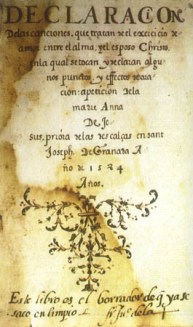 DECLARACION
De las canciones, que tratan de el exercicio de
amor entre el alma, y el esposo Christo.
en la qual se tocan y declaran algunos
punctos, y effectos de oracion:
a peticion de la
madre Anna
De Je-
sus, priora de las descalças en sant
Joseph de Granada A
ño de 1584
Años.
Este libro es el borrador de q̃ ya se
saco en limpio